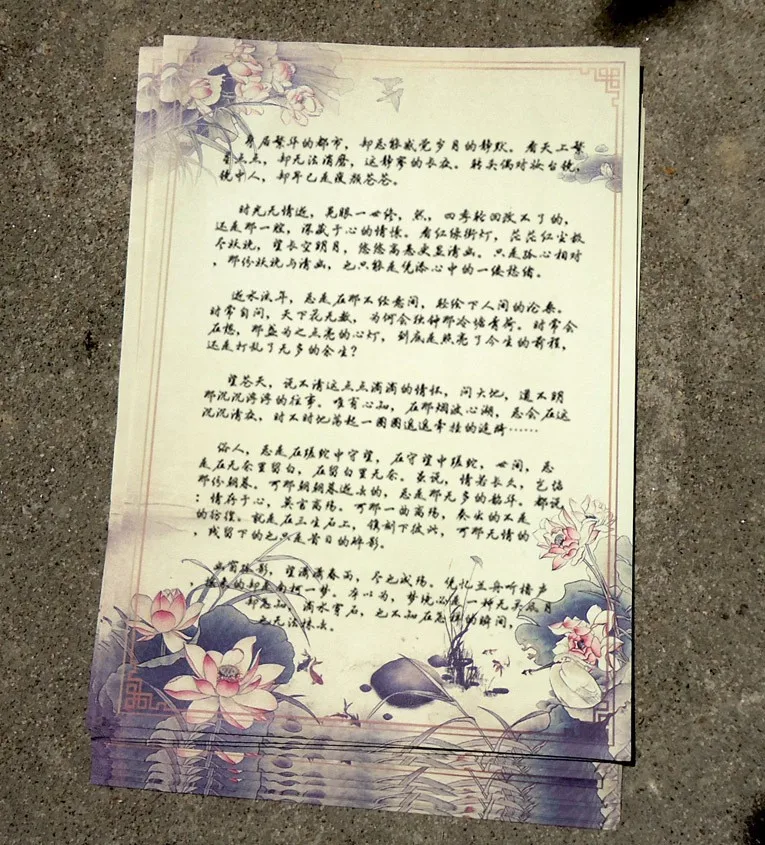 身居繁华的都市，却总能感觉岁月的静默。看天上繁
星点点，却无法消磨，这静寥的长夜。转头偶对妆台镜，
镜中人，却早已是疲颜苍苍。
时光无情逝，晃眼一世修，然，四季轮回改不了的，
还是那一腔，深藏于心的情愫。看红绿街灯，茫茫红尘数
尽妖娆，望长空明月，悠悠高悬更显清幽。只是孤心相对
，那份妖娆与清幽，也只能是凭添心中的一缕愁绪。
逝水流年，总是在那不经意间，轻绘下人间的沧桑。
时常自问，天下花无数，为何会独钟那冷塘青荷。时常会
在想，那盏为之点亮的心灯，到底是照亮了今生的前程，
还是打乱了无多的余生？
望苍天，说不清这点点滴滴的情怀，问大地，道不明
那沉沉浮浮的往事。唯有心知，在那烟波心湖，总会在这
沉沉清夜，时不时地荡起一圈圈遥遥牵挂的涟漪……
俗人，总是在蹉跎中守望，在守望中蹉跎，世间，总
是在无奈里留白，在留白里无奈。虽说，情若长久，岂惦
那份朝暮。可那朝朝暮逝去的，总是那无多的韶华。都说
：情存于心，莫言离殇。可那一曲离殇，奏出的不是
的彷徨。就是在三生石上，镌刻下彼兴，可那无情的
，残留下的也只是昔日的碎影。
幽窗孤影，望满满春雨，尽也成殇。凭忆兰舟听橹声
，换来的却是南柯一梦。本以为，梦境必是一种无关风月
却怎知，滴水穿石，也不知在怎样的瞬间，
也无法抹去。